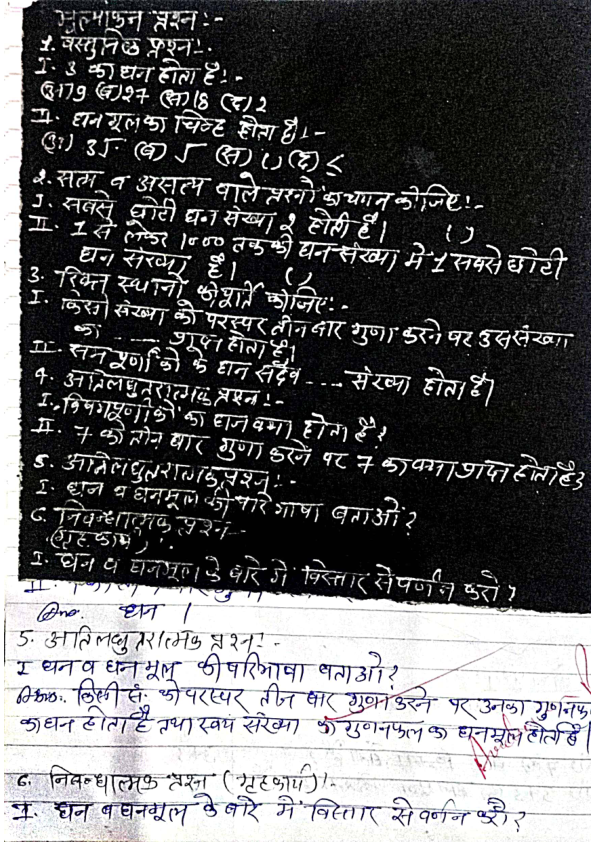 मुल्यांकन प्रश्न :-
1. वस्तुनिष्ठ प्रश्न :-
I. 3 का घन होता है :-
(अ) 9 (ब) 27 (स) 18 (द) 2
II. घनमूल का चिन्ह होता है :-
(अ) 3√ (ब) √ (स) () (द) ≤
2. सत्य व असत्य वाले प्रश्नों का चयन कीजिए :-
I. सबसे छोटी घन संख्या 1 होती है। ( )
II. 1 से लेकर 1000 तक की घन संख्या में 1 सबसे छोटी
घन संख्या है। ( )
3. रिक्त स्थानों की पूर्ति कीजिए :-
I. किसी संख्या को परस्पर तीन बार गुणा करने पर उस संख्या
का .... प्राप्त होता है।
II. सम पूर्णांकों के घन सदैव .... संख्या होता है।
4. अतिलघुतरात्मक प्रश्न :-
I. विषमपूर्णांकों का घन क्या होता है?
II. 7 को तीन बार गुणा करने पर 7 का क्या प्राप्त होता है?
5. अतिलघुतरात्मक प्रश्न :-
I. घन व घनमूल की परिभाषा बताओं?
6. निबन्धात्मक प्रश्न
(गृहकार्य) :-
I. घन व घनमूल के बारे में विस्तार से वर्णन करो?
Ans. घन।
5. अतिलघुतरात्मक प्रश्न :-
I घन व घनमूल की परिभाषा बताओ?
Ans. किसी सं. को परस्पर तीन बार गुणा करने पर उनका गुणनफ
का घन होता है तथा स्वयं संख्या के गुणनफल का घनमूल होती है।
6. निबन्धात्मक प्रश्न (गृहकार्य) :-
I. घन व घनमूल के बारे में विस्तार से वर्णन करो?